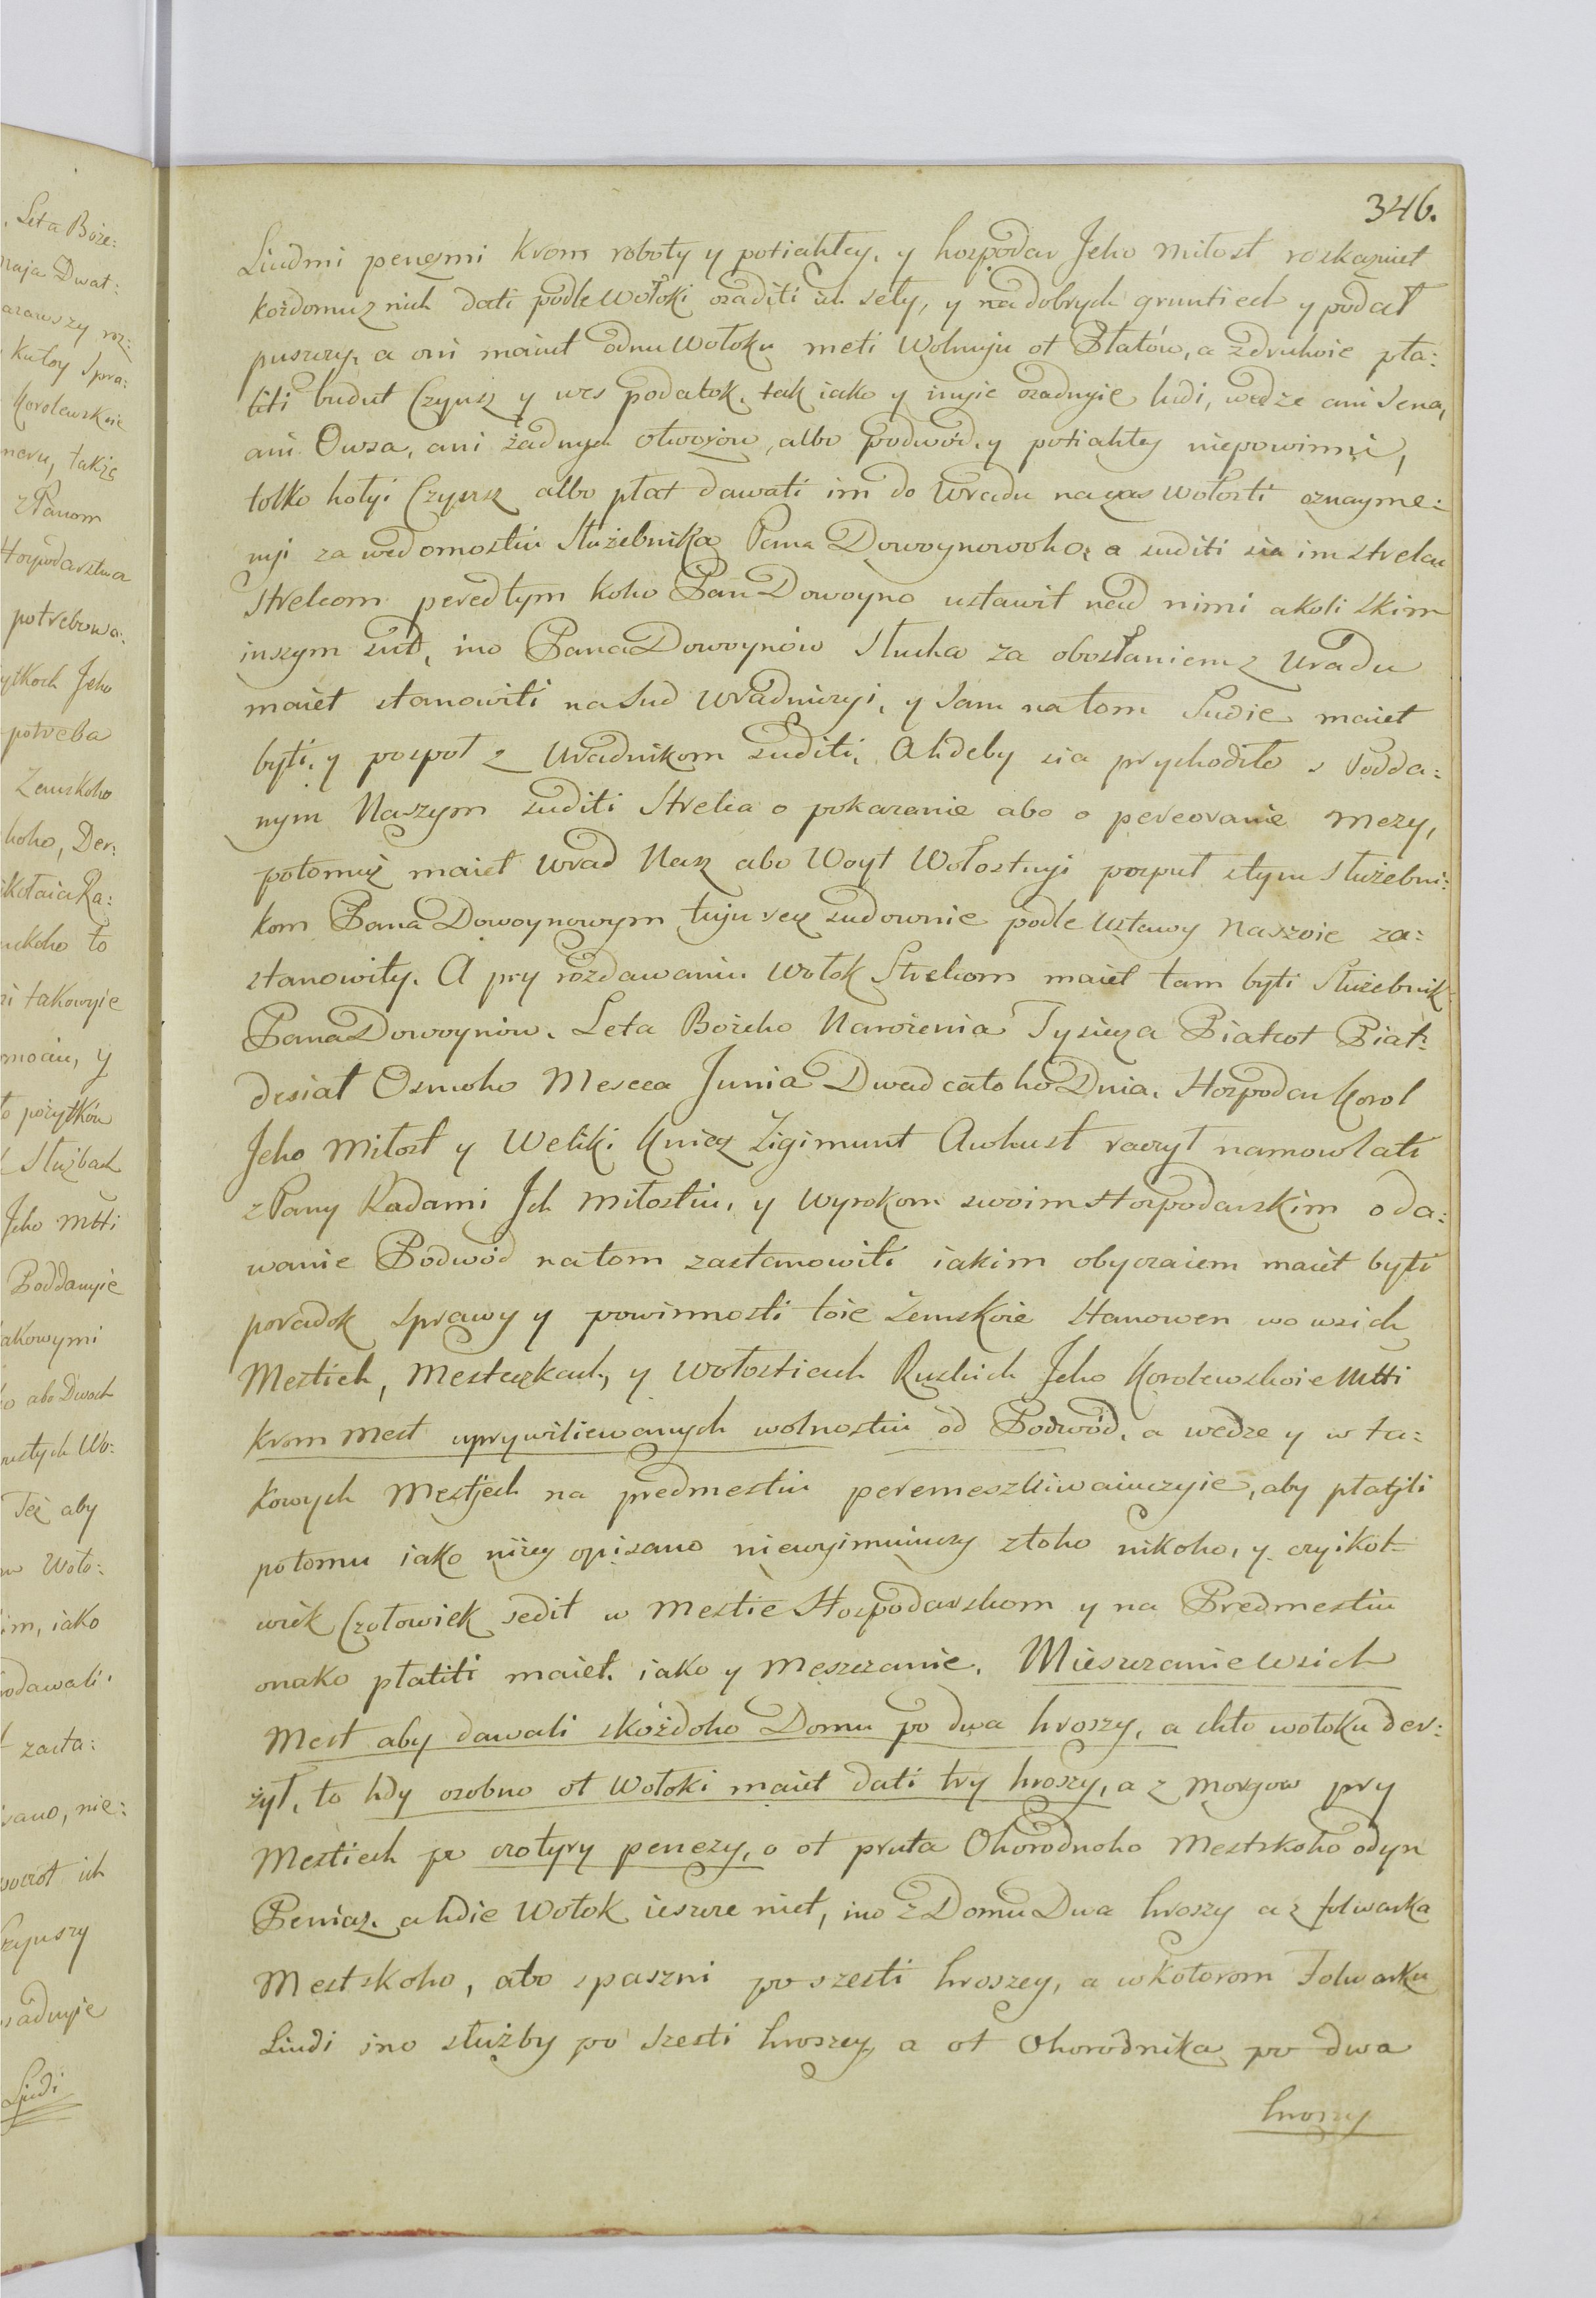 346.
Liudmi penezmi krom roboty y potiahley, y hospodar Jeho Miłost roskazuiet
kożdomuz nich dati podle wołoki osaditi ich seły, y na dobrych gruntiech y podał
puszczy, a oni maiut odnu Wołoku meti Wolnuju ot Płatów, a z druhoie pła:
titi budut Czynsz y wes podatok, tak iako y inyie osadnyie ludi, wedże ani Sena,
ani Owsa, ani żadnych otworów, albo podwód, y potiahley niepowinni,
tolko hołyi Czynsz albo płat dawati im do Wradu na czas Wołosti oznayme:
nyi za wedomostiu Służebnika Pana Dowoynowoho, a suditi sia im strelcu
Strelcom peredtym koho Pan Dowoyno ustawit nad nimi a koli skim
inszym sud, ino Pana Dowoynów Słuha za obosłaniem z Uradu
maiet stanowiti na Sud Wradniczyi, y Sam na tom Sudie maiet
byti, y pospoł z Uradnikom suditi, A hdeby sia prychodiło s Podda:
nym Naszym suditi Strelca o pokazanie abo o pereoranie mezy,
potomuż maiet Wrad Nasz abo Woyt Wołostnyi pospuł s tym Służebni:
kom Pana Dowoynowym tuju recz sudownie podle Ustawy Naszoie za:
stanowity. A pry rozdawaniu Wołok Strelcom maiet tam byti Służebnik
Pana Dowoynów. Leta Bożeho Narożenia Tysiecza Piatsot Piat:
desiat Osmoho Meseca Junia Dwadcatoho Dnia. Hospodar Korol
Jeho Miłost y Weliki Kniaz Zigimunt Awhust raczył namowlati
z Pany Radami Ich Miłostiu, y Wyrokom swoim Hospodarskim o da:
wanie Podwód na tom zastanowiti iakim obyczaiem maiet byti
poradok Sprawy y powinnosti toie Zemskoie Stanowen wo wsich
Mestiech, Mesteczkach, y Wołostiach Ruskich Jeho Korolewskoie Mtti
krom Mest uprywiliewanych wolnostiu od Podwód, a wedże y w ta:
kowych Mestjech na predmestiu peremeszkiwaiuczyie, aby płatjli
potomu iako niżey opisano niewyimuiuczy z toho nikoho, y czyikol
wiek Czołowiek sedit w Mestie Hospodarskom y na Predmestiu
onako płatiti maiet, iako y Meszczanie. Mieszczanie wsich
Mest aby dawali s kożdoho Domu po dwa hroszy, a chto wołoku der:
żyt, to hdy osobno ot Wołoki maiet dati try hroszy, a z Morgow pry
Mestiech po czotyry penezy, o ot pruta Ohorodnoho Mestskoho odyn
Peniaz, a hdie Wołok ieszcze niet, ino z Domu Dwa hroszy a z folwarka
Mestskoho, abo s paszni po szesti hroszey, a w kotorom Folwarku
Liudi ino służby po Szesti hroszey, a ot Ohorodnika po dwa
hroszy
Leta Boże:
maja Dwat:
Korolewskoie
także
z Panom
Hospodarstwa
potrebowa:
Jeho
potreba
Zemskoho
koho, Der:
ikołaia Ra:
to
i takowyie
y
pożytków
Służbach
Jeho Mtti
Poddanyie
akowymi
abo Dwoch
Wo:
Też aby
Woło:
im, iako
odawali
zasta:
sano, nie:
ich
Czynszy
sadnyie
Liudi